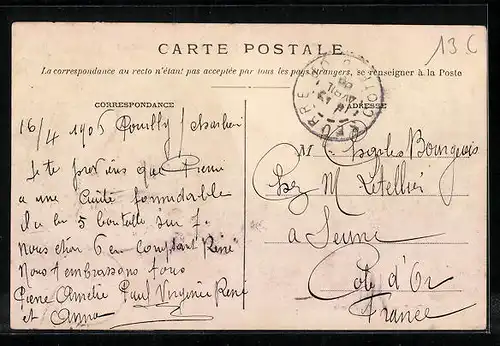 13 C
CARTE POSTALE
La correspondance au recto n'étant pas acceptée par tous les pays étrangers, se renseigner à la Poste
CORRESPONDANCE
ADRESSE
16/4 1906 Pouilly / Charlieu
Je te préviens que Pierre
a une cuite formidable
il a bu 5 bouteille sur 7.
nous étion 6 en comptant René
Nous t embrassons tous
Pierre Amelie Paul Virginie René
et Anna
M Charles Bourgeois
Chez M Letellier
a Seurre
Cote d'Or
France